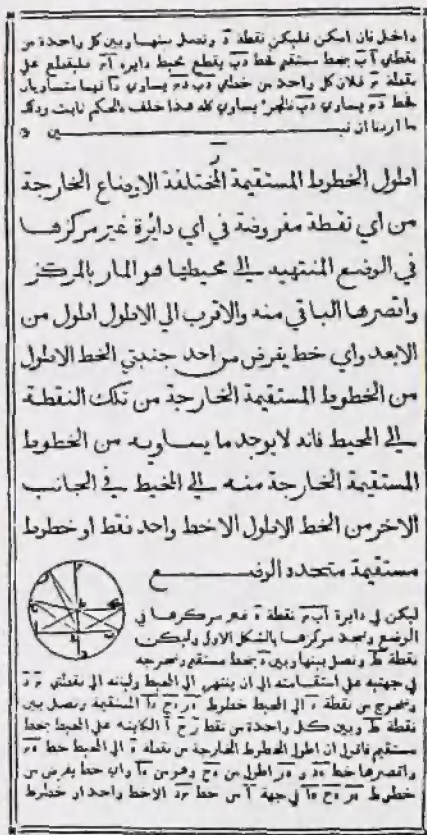 داخل فان امكن فليكن نقطة ه ونصل بينها وبين كل واحدة من
نقطتي آ ب بخط مستقيم فخط يقطع محيط دايرة فليقطع على
نقطة فلان كل واحد من خطي يساوي فهما متساويان
فخط يساوي فالجزء يساوي كله هذا خلف فالحكم ثابت وذلك
ما اردنا ان نبين
ز
اطول الخطوط المستقيمة المختلفة الاوضاع الخارجة
من اي نقطة مفروضة في اي دايرة غير مركزها
في الوضع المنتهيه الى محيطها هو المار بالمركز
واقصرها الباقي منه والاقرب الى الاطول اطول من
الابعد واي خط يفرض من احد جنبتي الخط الاطول
من الخطوط المستقيمة الخارجة من تلك النقطة
الى المحيط فانه لا يوجد ما يساويه من الخطوط
المستقيمة الخارجة منه الى المحيط في الجانب
الاخر من الخط الاطول الا خط واحد فقط او خطوط
مستقيمة متحدد الوضع
ليكن في دايرة نقطة ه غير مركزها في
الوضع ونجد مركزها بالشكل الاول وليكن
نقطة ط ونصل بينها وبين ه بخط مستقيم ونخرجه
في جهتيه على استقامته الى ان ينتهي الى المحيط وليته الى نقطتي
ونخرج من نقطة ه الى المحيط خطوط المستقيمة ونصل بين
نقطة ط وبين كل واحدة من نقط الكاينه على المحيط بخط
مستقيم فاقول ان اطول الخطوط الخارجة من نقطة ه الى المحيط خط
واقصرها خط و اطول من وهو من واي خط يفرض من
خطوط في جهة من خط الا خط واحد او خطوط